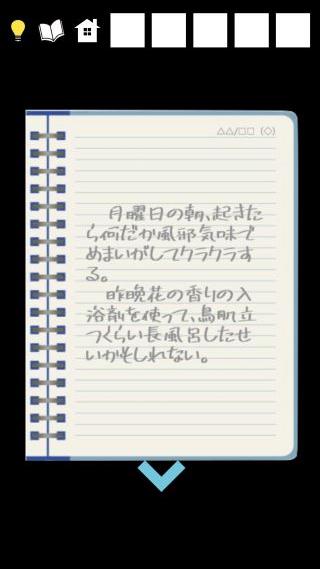 △△/□□ (◇)
月曜日の朝、起きた
ら何だか風邪気味で
めまいがしてクラクラす
る。
昨晩花の香りの入
浴剤を使って、鳥肌立
つくらい長風呂したせ
いかもしれない。